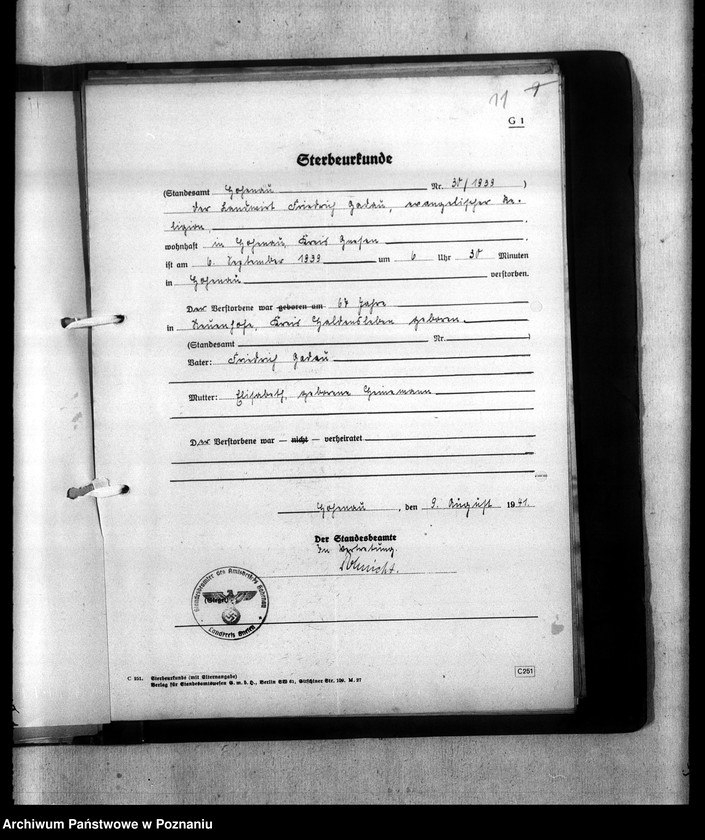 11
G 1
Sterbeurkunde
(Standesamt Hohenau Nr. 30/1939)
Der Landwirt Friedrich Gadau, evangelischer Re-
ligion,
wohnhaft in Hohenau, Kreis Gnesen
ist am 6. September 1939 um 6 Uhr 30 Minuten
in Hohenau verstorben.
Der Verstorbene war geboren am 67 Jahre
in Neuenhofe, Kreis Haldensleben geboren.
(Standesamt Nr. )
Vater: Friedrich Gadau
Mutter: Elisabeth, geborene Heinemann
Der Verstorbene war — nicht — verheiratet
Hohenau, den 9. August 1941.
Der Standesbeamte
In Vertretung.
(Siegel)
Landkreis Gnesen
C 251. Sterbeurkunde (mit Elternangabe)
Verlag für Standesamtswesen G. m. b. H., Berlin SW 61, Gitschiner Str. 109. M. 27
C251
Archiwum Państwowe w Poznaniu